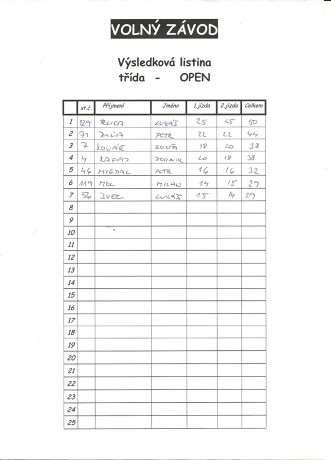 VOLNÝ ZÁVOD
Výsledková listina
třída - OPEN
st.č. Příjmení Jméno 1.jízda 2.jízda Celkem
1 129 LUKÁŠ 25 25 50
2 71 PETR 22 22 44
3 7 KOVÁŘ 18 20 38
4 4 20 18 38
5 46 MIGDAL PETR 16 16 32
6 119 MOL MILAN 14 15 29
7 56 ŠVEC LUKÁŠ 15 14 29
8
9
10
11
12
13
14
15
16
17
18
19
20
21
22
23
24
25